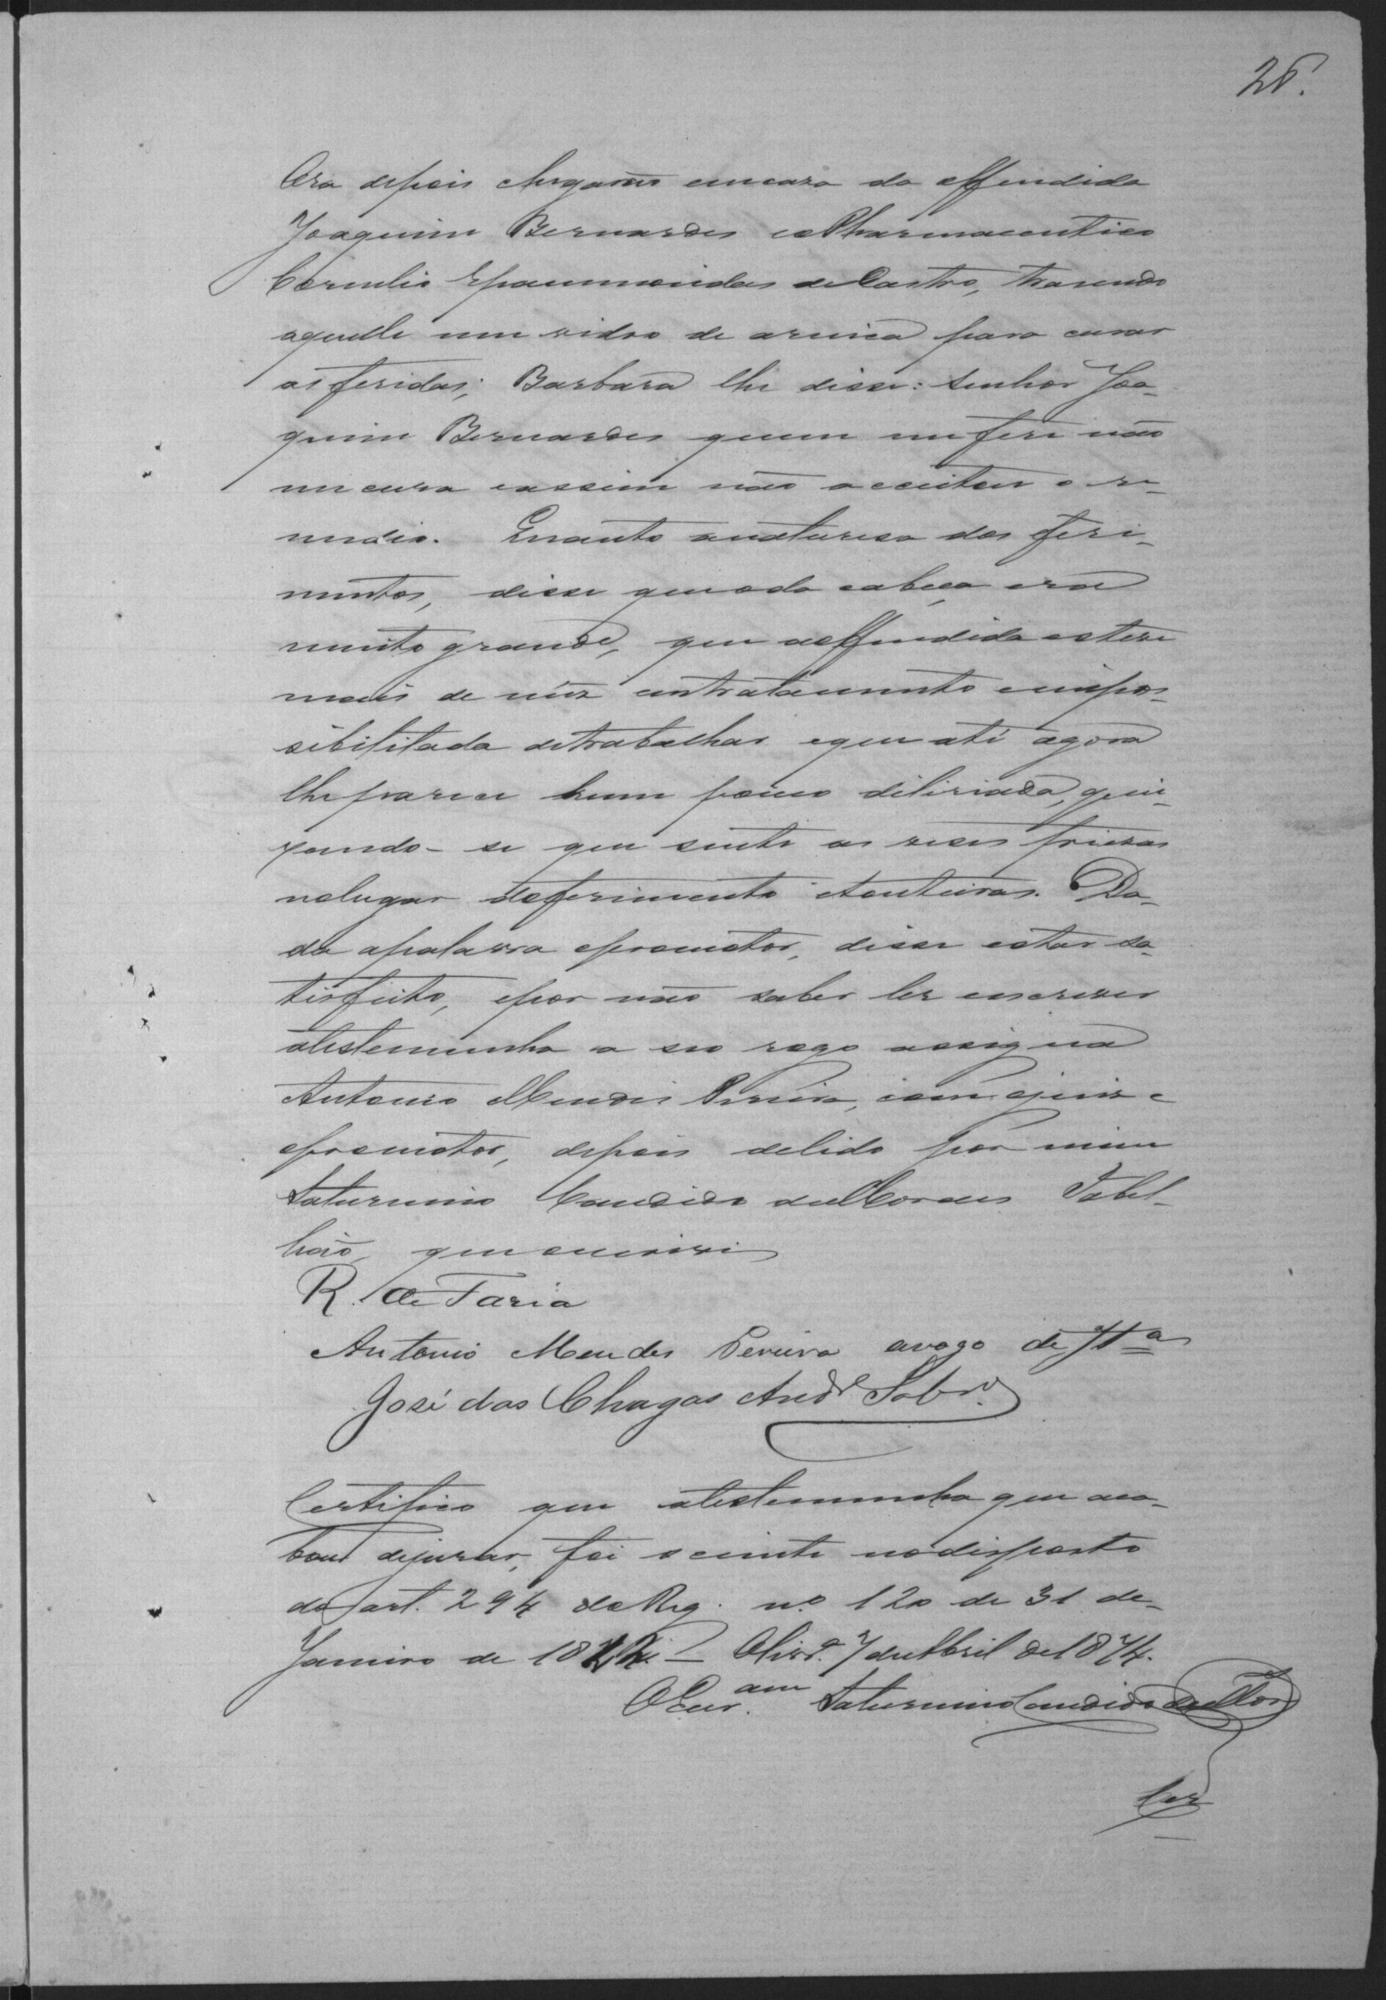 26.
Ora depois chegarão em caza da offendida
Joaquim Bernardes e o Pharmaceutico
Cornelio Epaminondas de Castro, trasendo
aquelle um vidro de arnica para curar
as feridas; Barbara lhe disse: Senhor Joa-
quim Bernardes quem me feri não
me cura e assim não acceitou o re-
medio. Quanto a naturesa dos feri-
mentos, disse que o da cabeça era
muito grande, que a offendida esteve
mais de mez em tratamento e impos-
sibilitada de trabalhar e que até agora
lhe parece hum pouco deliriada, quei-
xando-se que sente as veses friezas
no lugar do ferimento e tonteiras. Da-
da a palavra o promotor, disse estar sa-
tisfeito, e por não saber ler e escrever
a testemunha a seo rogo assigna
Antonio Mendes Pereira, com o juiz e
o promotor, depois de lido por mim
Saturnino Candido de Moraes Tabel-
lião, que escrivi
R. de Faria
Antonio Mendes Pereira arogo de Ttª
José das Chagas Andᵉ Sobrº
Certifico que a testemunha que aca-
bou de jurar, foi sciente no disposto
do art. 294 do Reg. nº 120 de 31 de
Janeiro de 1842. – Olivª 7 de Abril de 1874.
O Escr.am Saturnino Candido de Mor